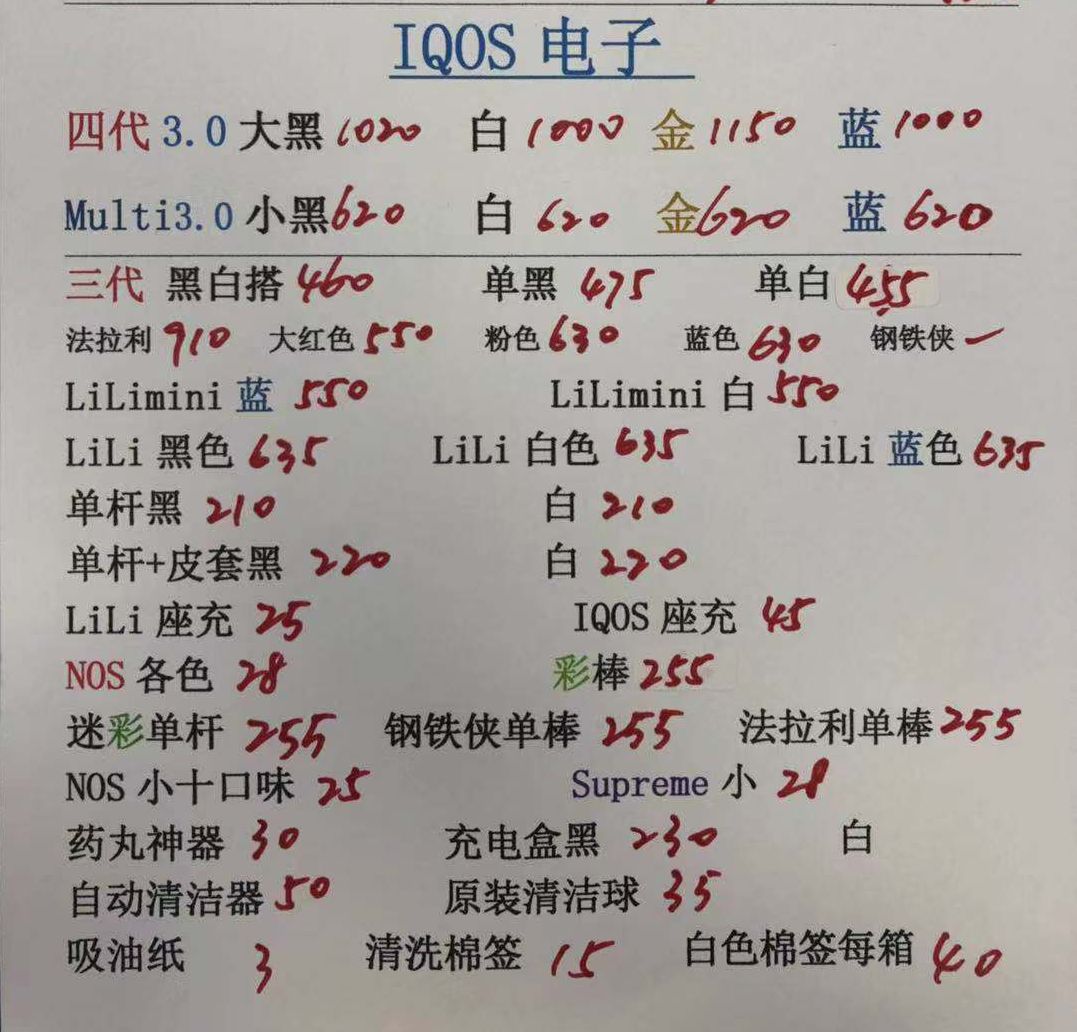 IQOS 电子
四代 3.0 大黑 1020 白 1000 金 1150 蓝 1000
Multi3.0 小黑 620 白 620 金 620 蓝 620
三代 黑白搭 460 单黑 475 单白 455
法拉利 910 大红色 550 粉色 630 蓝色 630 钢铁侠 一
LiLimini 蓝 550 LiLimini 白 550
LiLi 黑色 635 LiLi 白色 635 LiLi 蓝色 635
单杆黑 210 白 210
单杆+皮套黑 220 白 220
LiLi 座充 25 IQOS 座充 45
NOS 各色 28 彩棒 255
迷彩单杆 255 钢铁侠单棒 255 法拉利单棒 255
NOS 小十口味 25 Supreme 小 28
药丸神器 30 充电盒黑 230 白
自动清洁器 50 原装清洁球 35
吸油纸 3 清洗棉签 15 白色棉签每箱 40